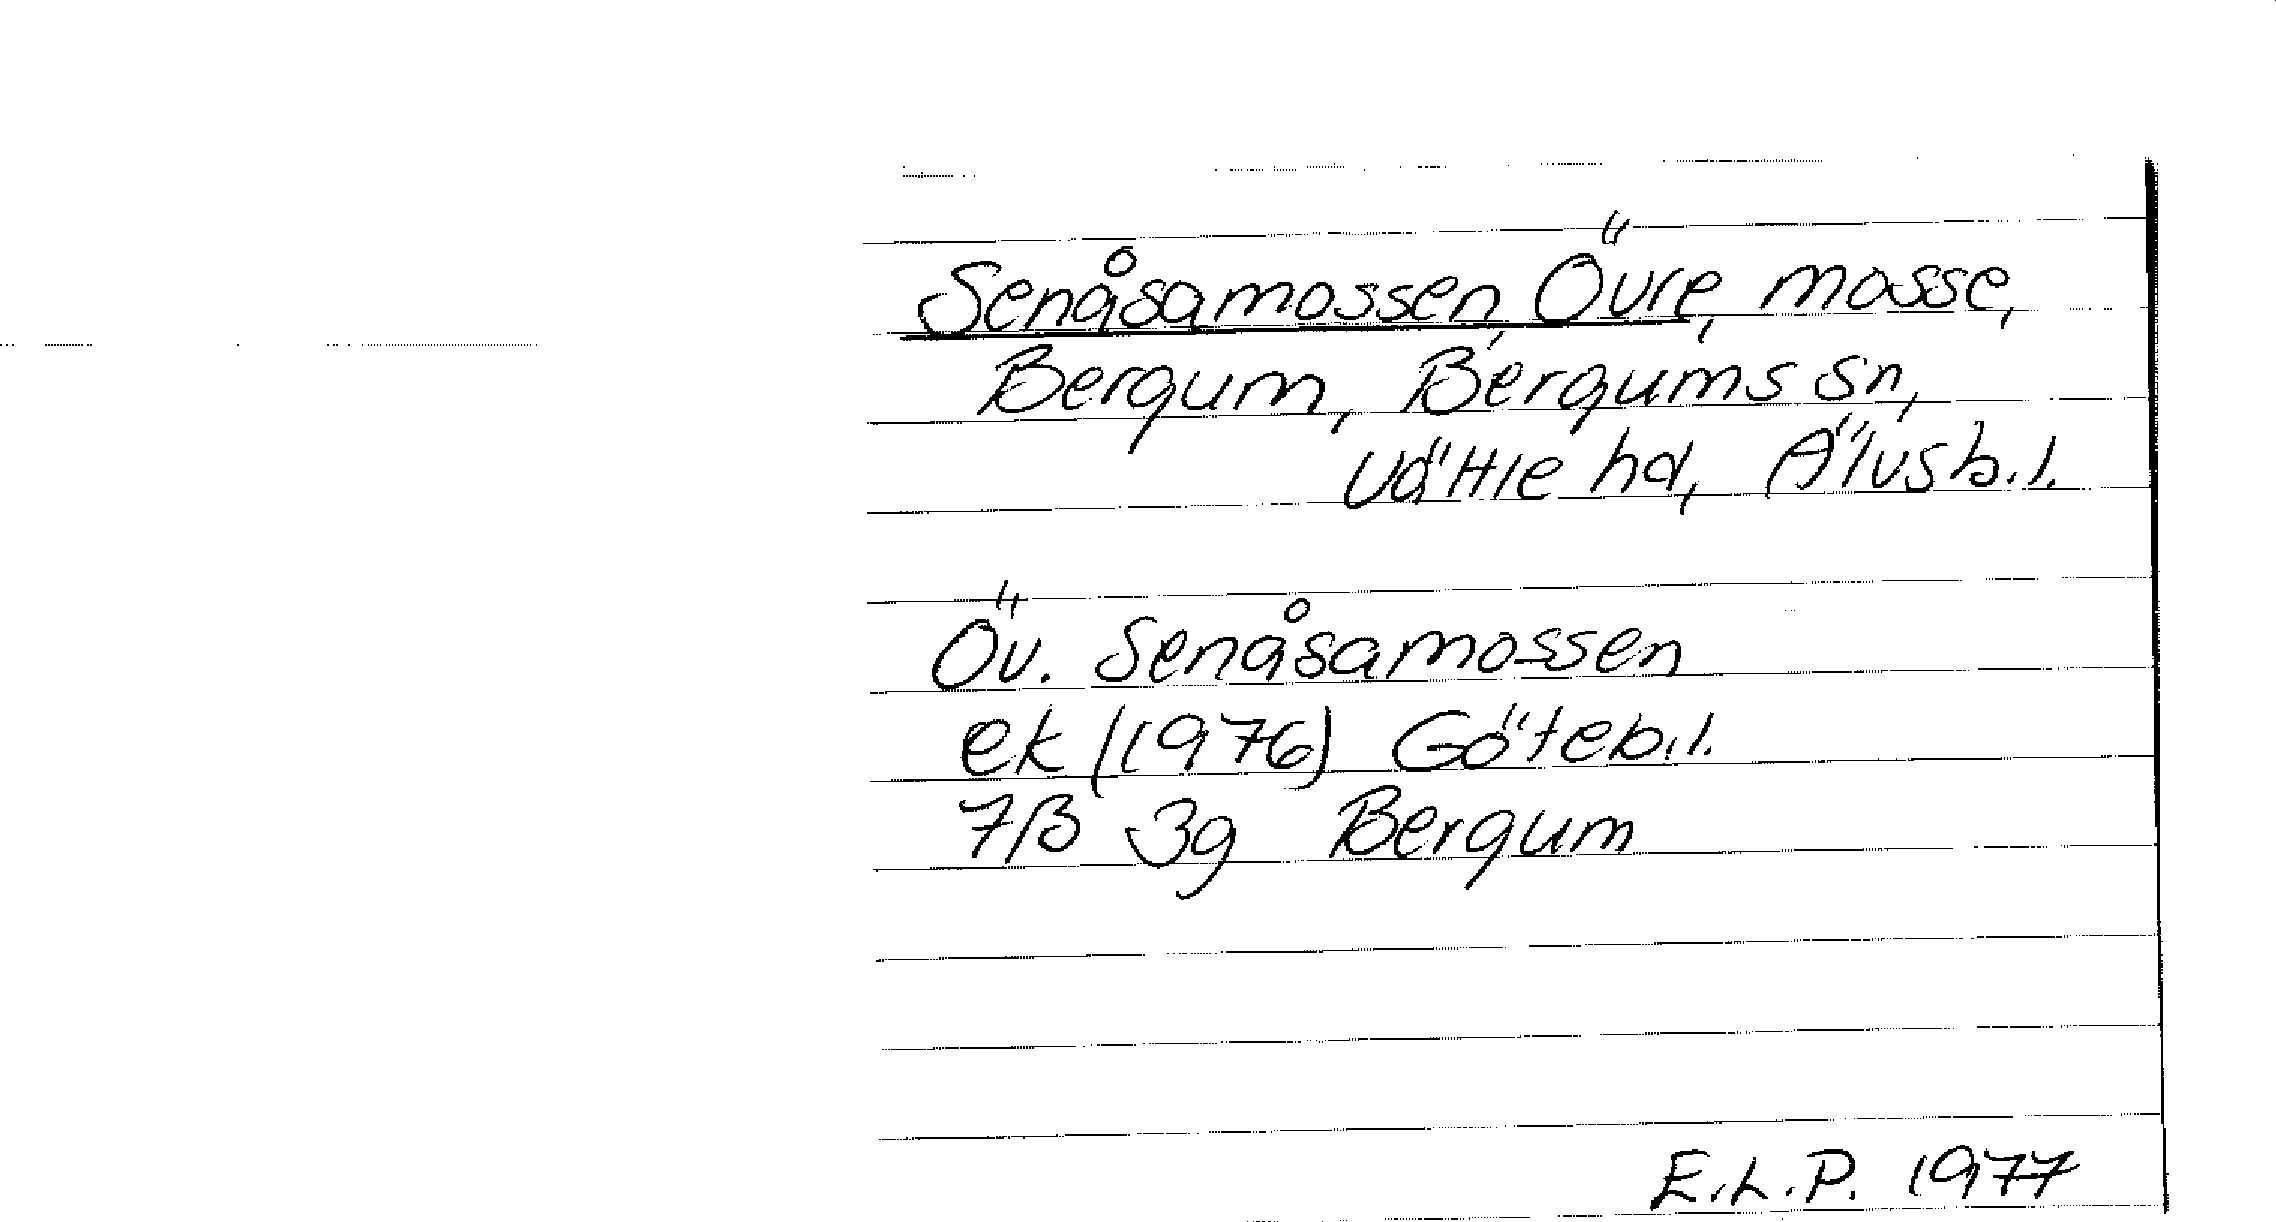 Senåsamossen, Övre, mosse,
Bergum, Bergums sn,
Vättle hd, Älvsb.l.
Öv. Senåsamossen
ek (1976) Göteb.l.
7B 3g Bergum
E.L.P. 1977